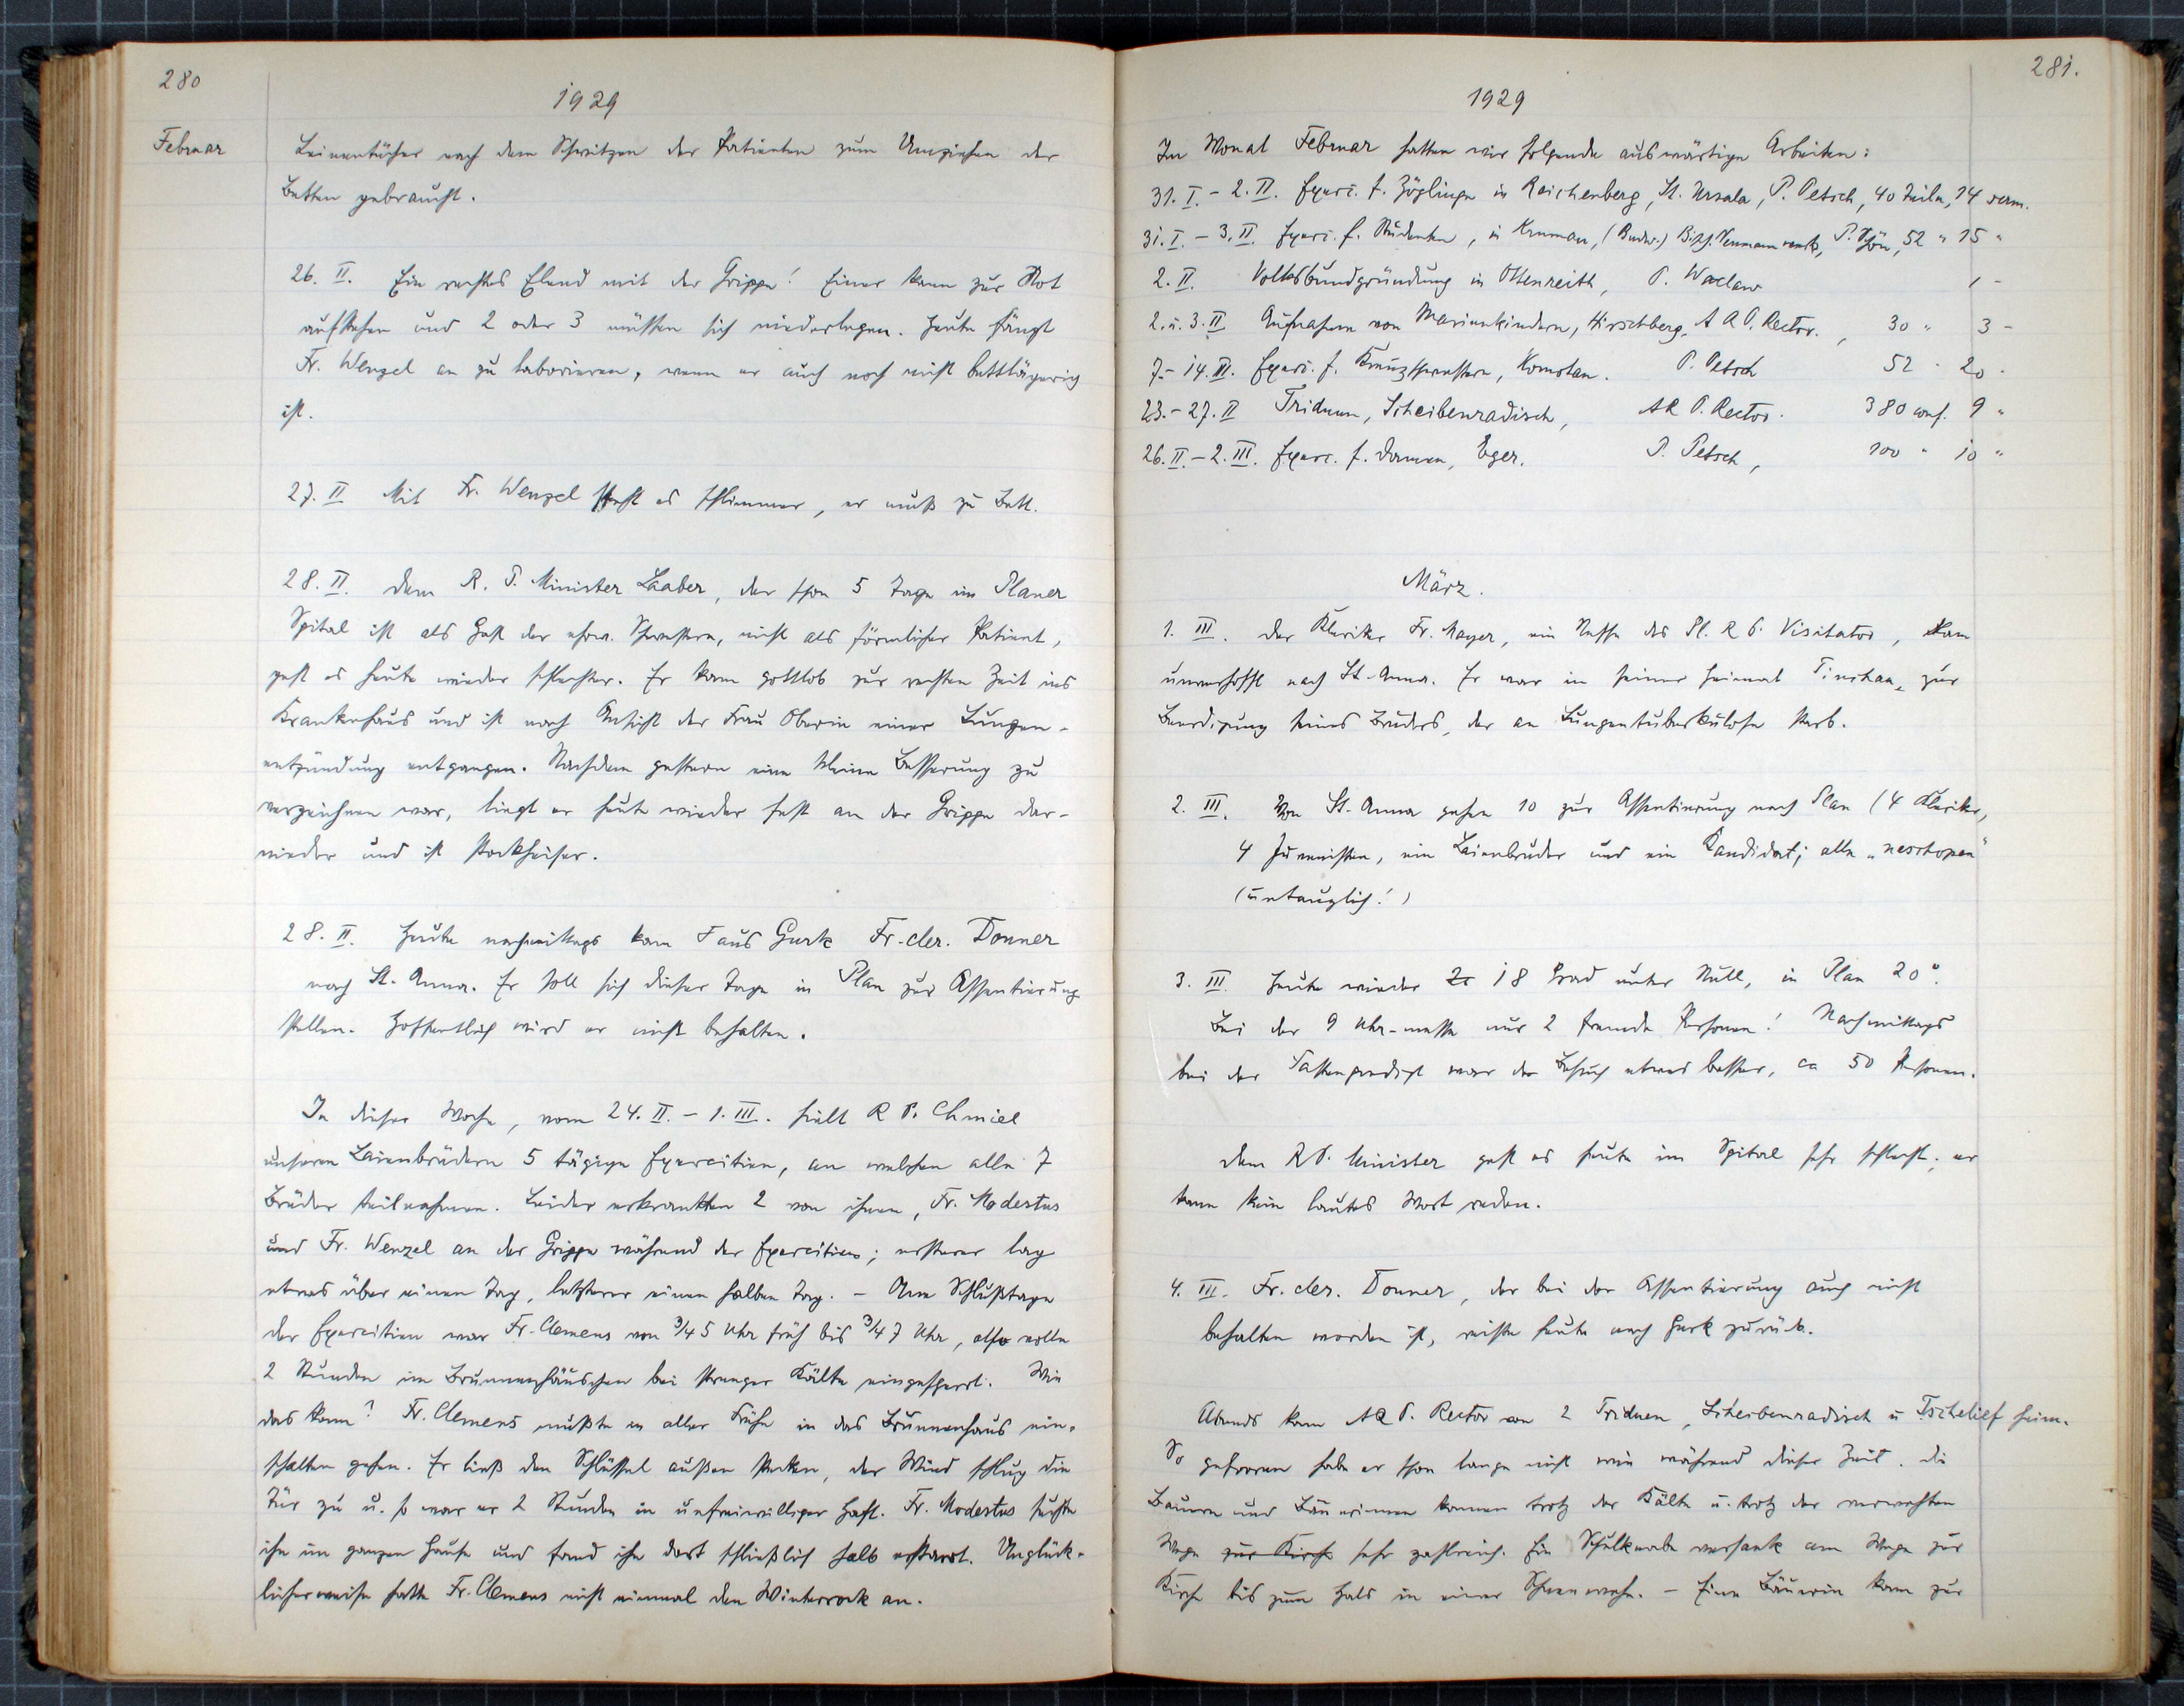 280
1929
Februar
Leinentücher nach dem Schwitzen der Patienten zum Umziehen der
Betten gebraucht.
26. II. Ein rechtes Elend mit der Grippe! Einer kann zur Not
aufstehen und 2 oder 3 müssen sich niederlegen. Heute fängt
Fr. Wenzel an zu laborieren, wenn er auch noch nicht bettlägerig
ist.
27. II Mit Fr. Wenzel steht es schlimmer, er muß zu Bett.
28. II. Dem R. P. Minister Laaber, der schon 5 Tage im Planer
Spital ist als Gast der ehrw. Schwestern, nicht als förmlicher Patient,
geht es heute wieder schlechter. Er kam gottlob zur rechten Zeit ins
Krankenhaus und ist nach Ansicht der Frau Oberin einer Lungen-
entzündung entgangen. Nachdem gestern eine kleine Besserung zu
verzeichnen war, liegt er heute wieder fest an der Grippe dar-
nieder und ist stockheiser.
28. II. Heute nachmittags kam aus Gurk Fr. cler. Donner
nach St. Anna. Er soll sich dieser Tage in Plan zur Assentierung
stellen. Hoffentlich wird er nicht behalten.
In dieser Woche, vom 24. II. - 1. III. hielt R P. Chmiel
unseren Laienbrüdern 5 tägige Exercitien, an welchen alle 7
Brüder teilnahmen. Leider erkrankten 2 von ihnen, Fr. Modestus
und Fr. Wenzel an der Grippe während der Exercitien; ersterer lag
etwas über einen Tag, letzterer einen halben Tag. - Am Schlußtage
der Exercitien war Fr. Clemens von 3/4 5 Uhr früh bis 3/4 7 Uhr, also volle
2 Stunden im Brunnenhäuschen bei strenger Kälte eingesperrt. Wie
das kam? Fr. Clemens mußte in aller Frühe in das Brunnenhaus ein-
schalten gehen. Er ließ den Schlüssel außen stecken, der Wind schlug die
Tür zu u. so war er 2 Stunden in unfreiwilliger Haft. Fr. Modestus suchte
ihn im ganzen Hause und fand ihn dort schließlich halb erstarrt. Unglück-
licherweise hatte Fr. Clemens nicht einmal den Winterrock an.
281.
1929
Im Monat Februar hatten wir folgende auswärtige Arbeiten:
31. I. - 2. II. Exerc. f. Zöglinge in Reichenberg, St. Ursula, P. Petsch, 40 Teiln., 14 serm.
31. I. - 3. II. Exerc. f. Studenten, in Krumau, (Budw.) Bisch. P. Schön, 52 " 15 "
2. II. Volksbundgründung in Ottenreith, P. Waclaw 1 -
2. u. 3. II Aufnahme von Marienkindern, Hirschberg, A R P. Rector, 30 " 3 -
7. - 14. II. Exerc. f. Kreuzschwestern, Komotau. P. Petsch 52 " 20 "
23. - 27. II Triduum, Scheibenradisch, AR P. Rector. 380 conf. 9 "
26. II. - 2. III. Exerc. f. Damen, Eger. P. Petsch, 100 " 10 "
März.
1. III. Der Kleriker Fr. Mayer, ein Neffe des Pl. R P. Visitator, kam
unverhofft nach St. Anna. Er war in seiner Heimat Tirschau, zur
Beerdigung seines Bruders, der an Lungentuberkulose starb.
2. III. Von St. Anna gehen 10 zur Assentierung nach Plan (4 Kleriker,
4 Juvenisten, ein Laienbruder und ein Kandidat; alle "neschopen"
(untauglich!)
3. III. Heute wieder 18 Grad unter Null, in Plan 20°.
Bei der 9 Uhr-messe nur 2 fremde Personen! Nachmittags
bei der Fastenpredigt war der Besuch etwas besser, ca 50 Personen.
Dem R P. Minister geht es heute im Spital sehr schlecht; er
kann kein lautes Wort reden.
4. III. Fr. cler. Donner, der bei der Assentierung auch nicht
behalten worden ist, reiste heute nach Gurk zurück.
Abends kam A R P. Rector von 2 Triduen, Scheibenradisch u Tschelief heim.
So gefroren habe er schon lange nicht wie während dieser Zeit. Die
Bauern und Bäuerinnen kamen trotz der Kälte u. trotz der verwehten
Wege zur Kirche sehr zahlreich. Ein Schulknabe versank am Wege zur
Kirche bis zum Hals in einer Schneewehe. - Eine Bäuerin kam zur